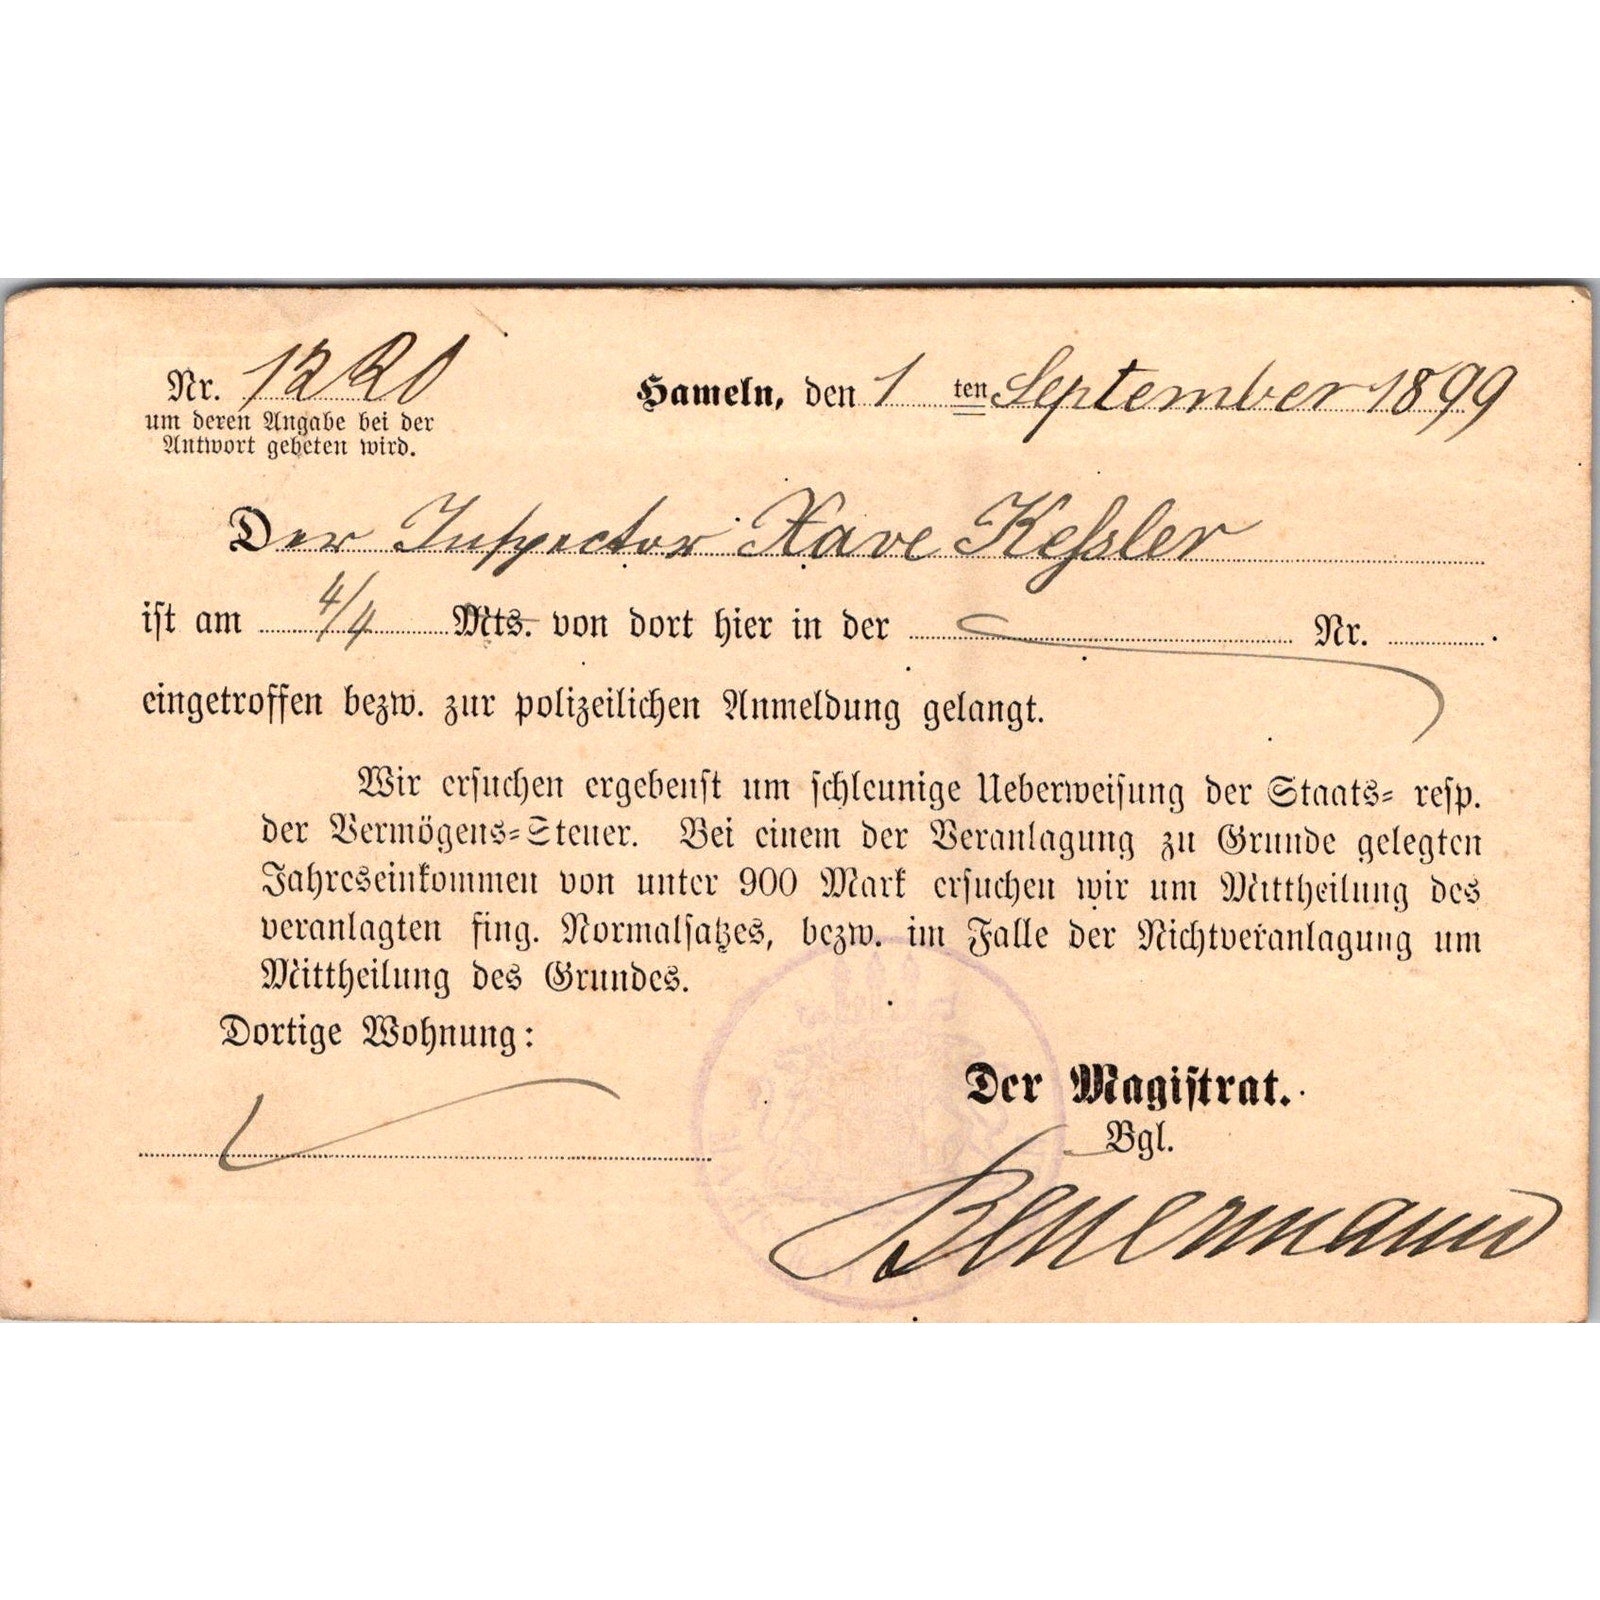 Nr. 1220
um deren Angabe bei der
Antwort gebeten wird.
Hameln, den 1 ten September 1899
Der Inspector Xave Keſsler
ist am 4/4 Mts. von dort hier in der Nr. .
eingetroffen bezw. zur polizeilichen Anmeldung gelangt.
Wir ersuchen ergebenst um schleunige Ueberweisung der Staats= resp.
der Vermögens=Steuer. Bei einem der Veranlagung zu Grunde gelegten
Jahreseinkommen von unter 900 Mark ersuchen wir um Mittheilung des
veranlagten fing. Normalsatzes, bezw. im Falle der Nichtveranlagung um
Mittheilung des Grundes.
Dortige Wohnung:
Der Magistrat.
Bgl.